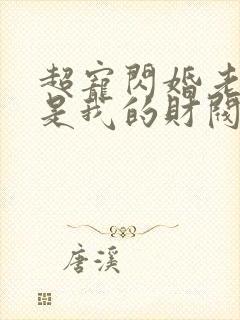 超寵閃婚老
是我的財閥
唐溪